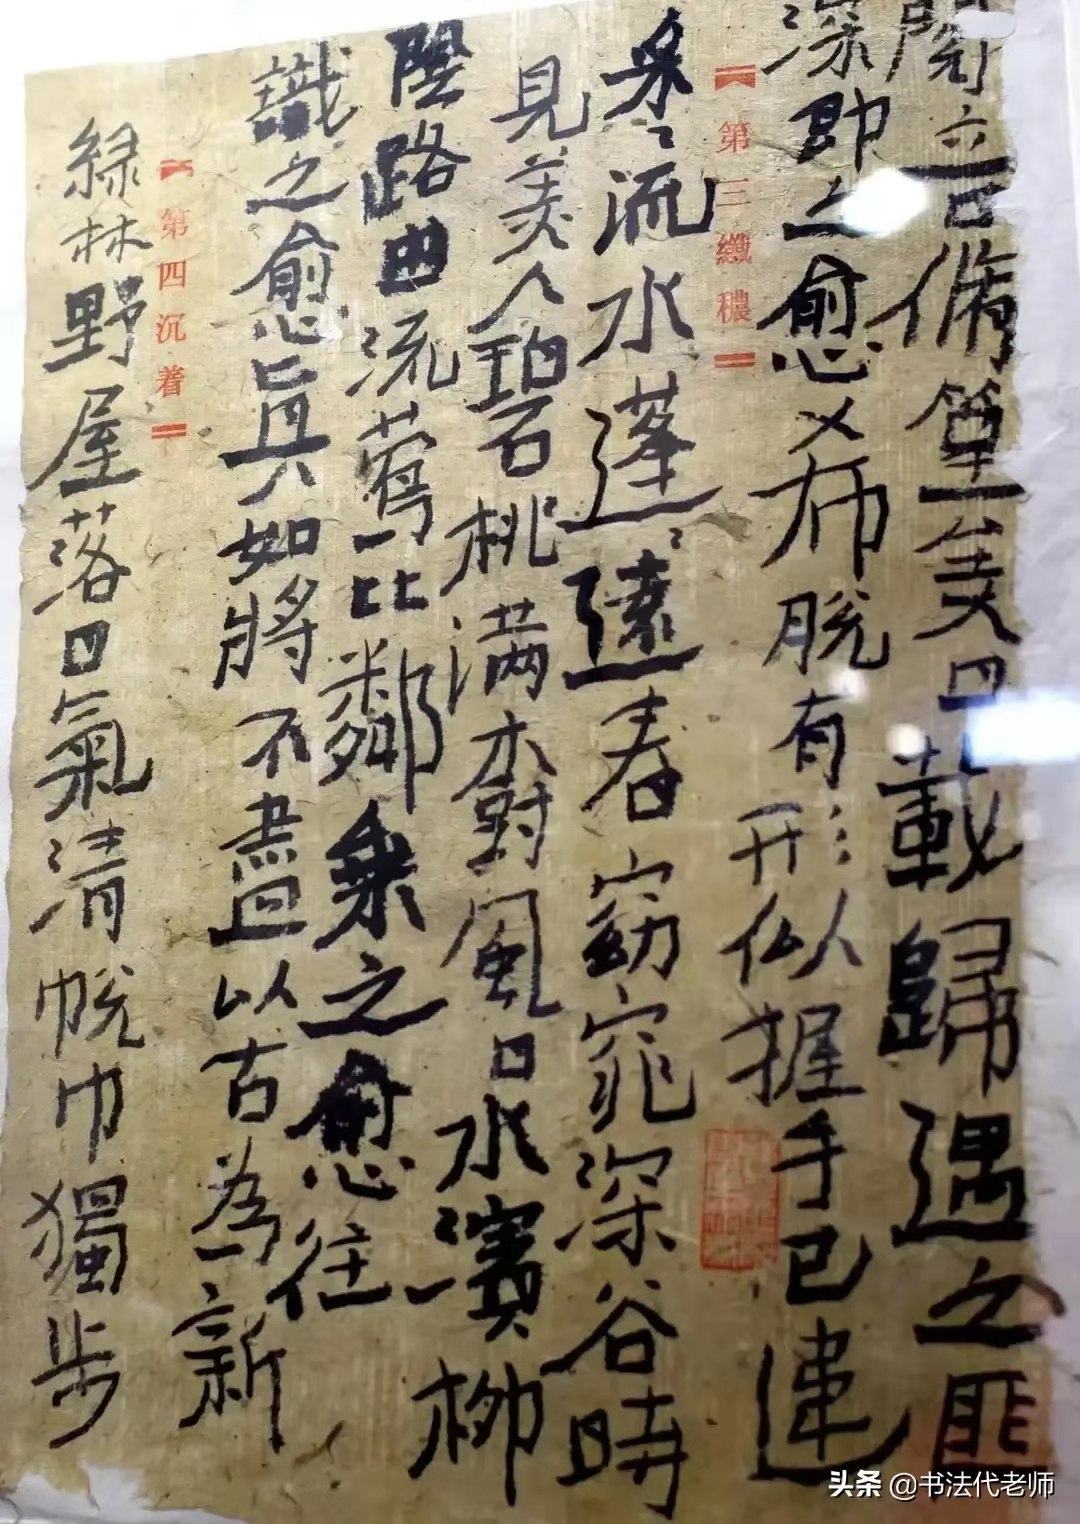 閱音脩篁美曰載歸遇之匪
深即之愈希脱有形似握手已違
第三纖穠
采〻流水蓬〻遠春窈窕深谷時
見美人碧桃满樹風日水濱柳
陰路曲流鶯比鄰乘之愈往
識之愈眞如將不盡以古為新
第四沉着
綠林野屋落日氣清帨巾獨步
头条 @书法代老师